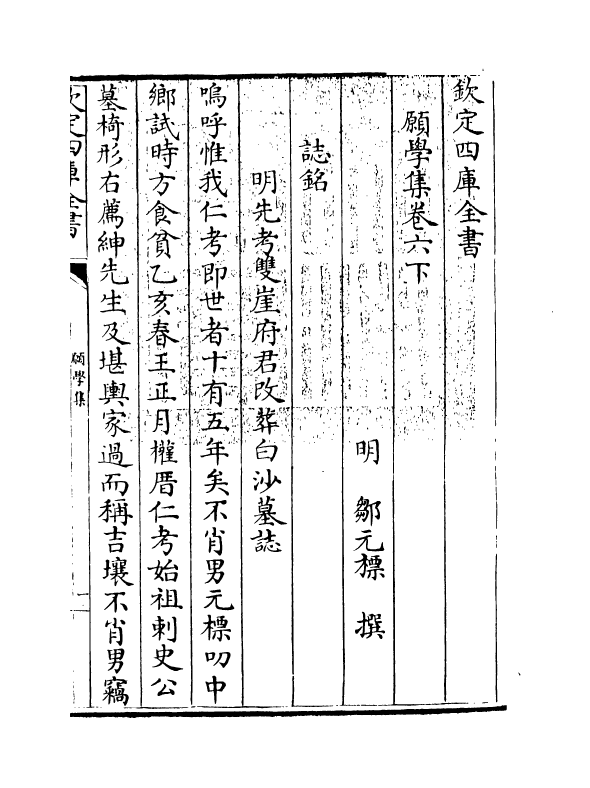 欽定四庫全書
願學集卷六下
明　鄒元標　撰
誌銘
明先考雙崖府君改葬白沙墓誌
嗚呼惟我仁考即世者十有五年矣不肖男元標叨中
鄉試時方食貧乙亥春王正月權厝仁考始祖刺史公
墓椅形右薦紳先生及堪輿家過而稱吉壤不肖男竊
欽定四庫全書
願學集
一